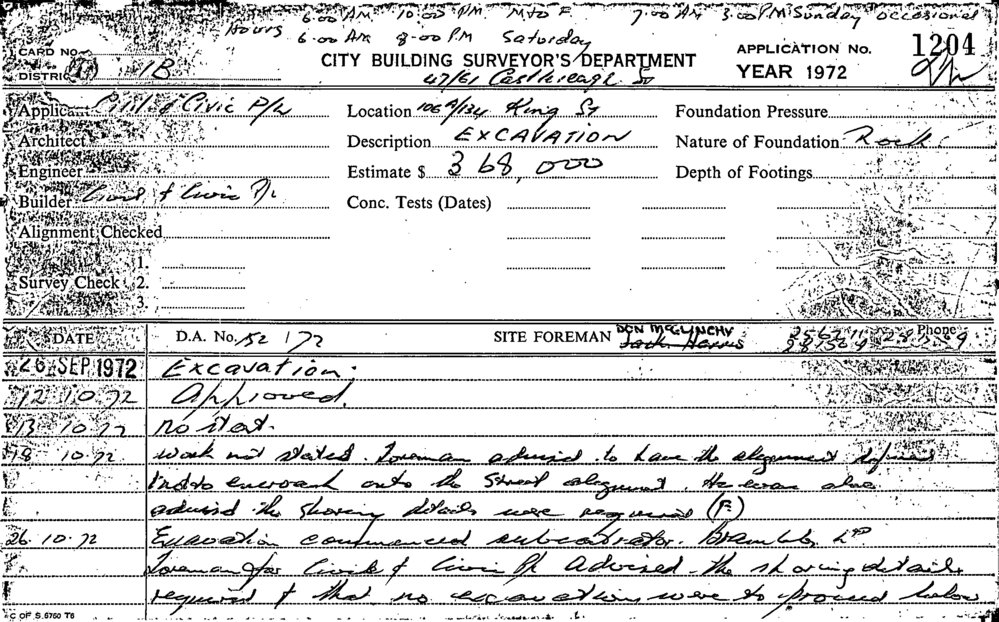 Hours 6.00 AM 10.00 PM M to F 7.00 AM 3.00 PM Sunday occasional
6.00 AM 8.00 PM Saturday
CARD No.
CITY BUILDING SURVEYOR'S DEPARTMENT
APPLICATION No. 1204
DISTRICT 1B
47/61 Castlereagh St
YEAR 1972
Applicant Civil & Civic P/L
Location 106A/134 King St
Foundation Pressure
Architect
Description EXCAVATION
Nature of Foundation Rock
Engineer
Estimate $ 368,000
Depth of Footings
Builder Civil & Civic P/L
Conc. Tests (Dates)
Alignment Checked
1.
Survey Check 2.
3.
DATE D.A. No. 152 / 72 SITE FOREMAN DON McGLINCHY Phone
Jack Harris
26 SEP 1972 Excavation.
12 10.72 Approved.
13 10 72 no start.
18 10 72 work not stated. Foreman advised to have the alignment defined
not to encroach onto the Street alignment. He was also
advised the shoring details were required (F)
26. 10. 72 Excavation commenced subcontractor. Brambles Ltd
Foreman for Civil & Civic P/L advised the shoring details
required & that no excavations were to proceed below
C OF S 6760 T6